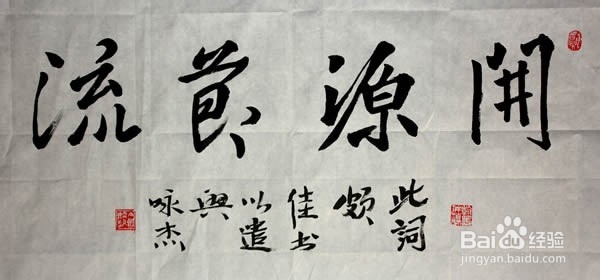 開源節流
此詞
頗
佳书
以遣
興
咏杰
Bai du 百度经验
jingyan.baidu.com